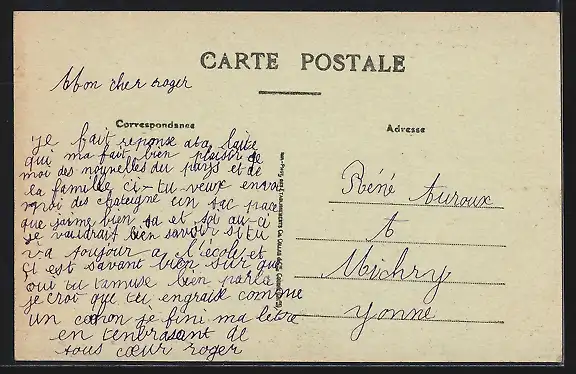 CARTE POSTALE
Mon cher roger
Correspondance
Adresse
je fait reponse a ta laite
qui ma fait bien plaisir de
moi des nouvelles du pays et de
la famille ci-tu veux envoi
moi des chataigne un sac pace
que jaime bien sa et toi au-ci
je vaudrait bien savoir si tu
va toujour a l'école et
çi est savant bien sur que
oui tu tamuse bien parla
je croi que tu engraise comme
un cochon je fini ma letre
en tenbrasant de
tous cœur roger
Réné Auroux
A
Michry
Yonne